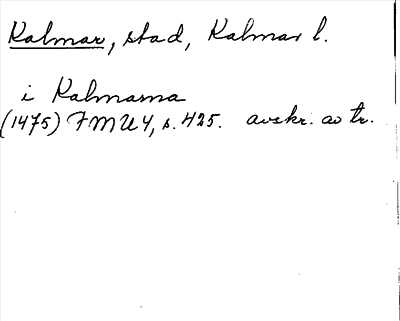 Kalmar, stad, Kalmar l.
i Kalmarna
(1475) FMU 4, s. 425. avskr. av tr.